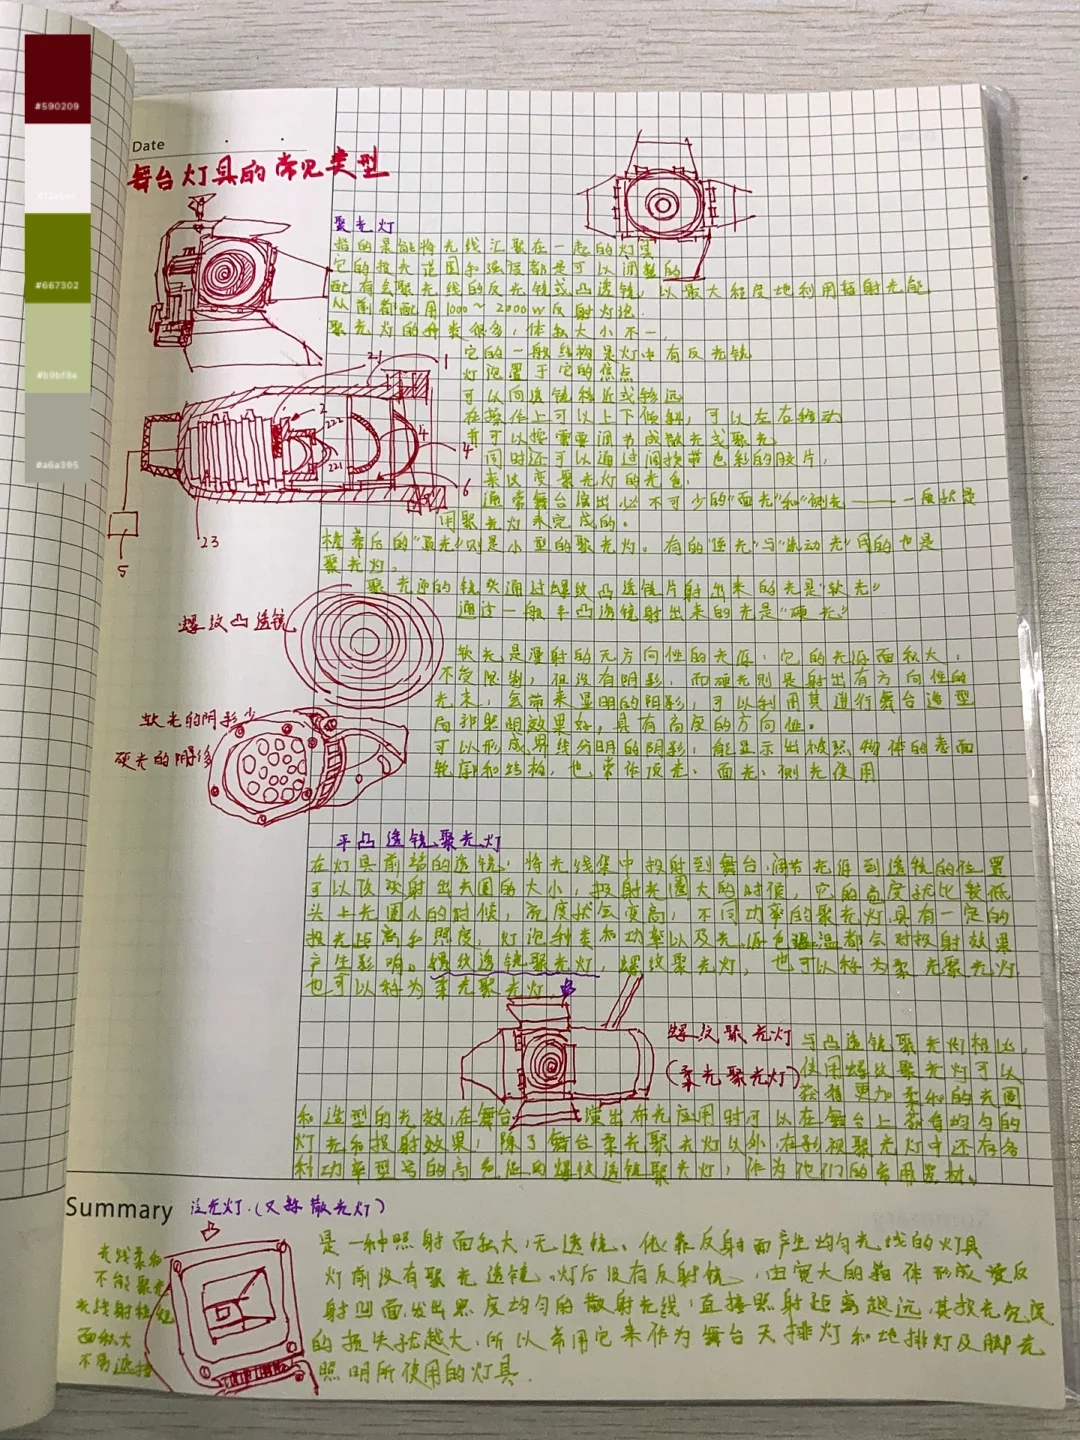 #590209
#667302
#b9bf8a
#a6a395
Date
舞台灯具的常见类型
聚光灯
指的是能将光线汇聚在一起的灯具
它的投光范围和强度都是可以调整的
配有会聚光线的反光镜或凸透镜,以最大程度地利用辐射光能
从前都配用1000~2000w反射灯泡.
聚光灯的种类很多,体积大小不一,
它的一般结构是灯中有反光镜
灯泡置于它的焦点
可以向透镜移近或移远
在操作上可以上下倾斜,可以左右移动
并可以按需要调节成散光或聚光
同时还可以通过调换带色彩的胶片,
来改变聚光灯的光色.
通常舞台演出必不可少的"面光"和"侧光——一般
用聚光灯来完成的。
幕后的"光"则是小型的聚光灯。有的"逆光"与"流动光"用的也是
聚光灯。
聚光灯的镜头通过螺纹凸透镜片射出来的光是"软光"
通过一般平凸透镜射出来的光是"硬光"
21
1
2
222
221
4
4
6
5
23
螺纹凸透镜
软光的阴影少
硬光的阴影多
软光是漫射的无方向性的光源,它的光源面积大,
不受限制,但没有阴影,而硬光则是射出有方向性的
光束,会带来显明的阴影,可以利用其进行舞台造型
局部照明效果好,具有高度的方向性。
可以形成界线分明的阴影,能显示出被照物体的表面
轮廓和结构,也常作顶光、面光、侧光使用
平凸透镜聚光灯
在灯具前端的透镜,将光线集中投射到舞台,调节光源到透镜的位置
可以改变射出光圈的大小,投射光圈大的时候,它的亮度就比较低
头上光圈小的时候,亮度就会变高,不同功率的聚光灯具有一定的
投光距离和照度,灯泡种类和功率以及光源色温都会对投射效果
产生影响。螺纹透镜聚光灯,螺纹聚光灯,也可以称为柔光聚光灯
也可以称为柔光聚光灯
螺纹聚光灯
(柔光聚光灯)
与凸透镜聚光灯相比,
使用螺纹聚光灯可以
获得更加柔和的光圈
和造型的光效,在舞台演出布光应用时可以在舞台上获得均匀的
灯光和投射效果,除了舞台柔光聚光灯以外,在影视聚光灯中还有各
种功率型号的高色温的螺纹透镜聚光灯,作为他们的常用器材。
Summary
泛光灯.(又称散光灯)
光线柔和
不能聚光
光线射程短
面积大
不易遮挡
是一种照射面积大,无透镜、依靠反射面产生均匀光线的灯具
灯前没有聚光透镜,灯后没有反射镜,由宽大的箱体形成漫反
射凹面,发出照度均匀的散射光线,直接照射距离越远,其投光亮度
的损失就越大,所以常用它来作为舞台天排灯和地排灯及脚光
照明所使用的灯具.